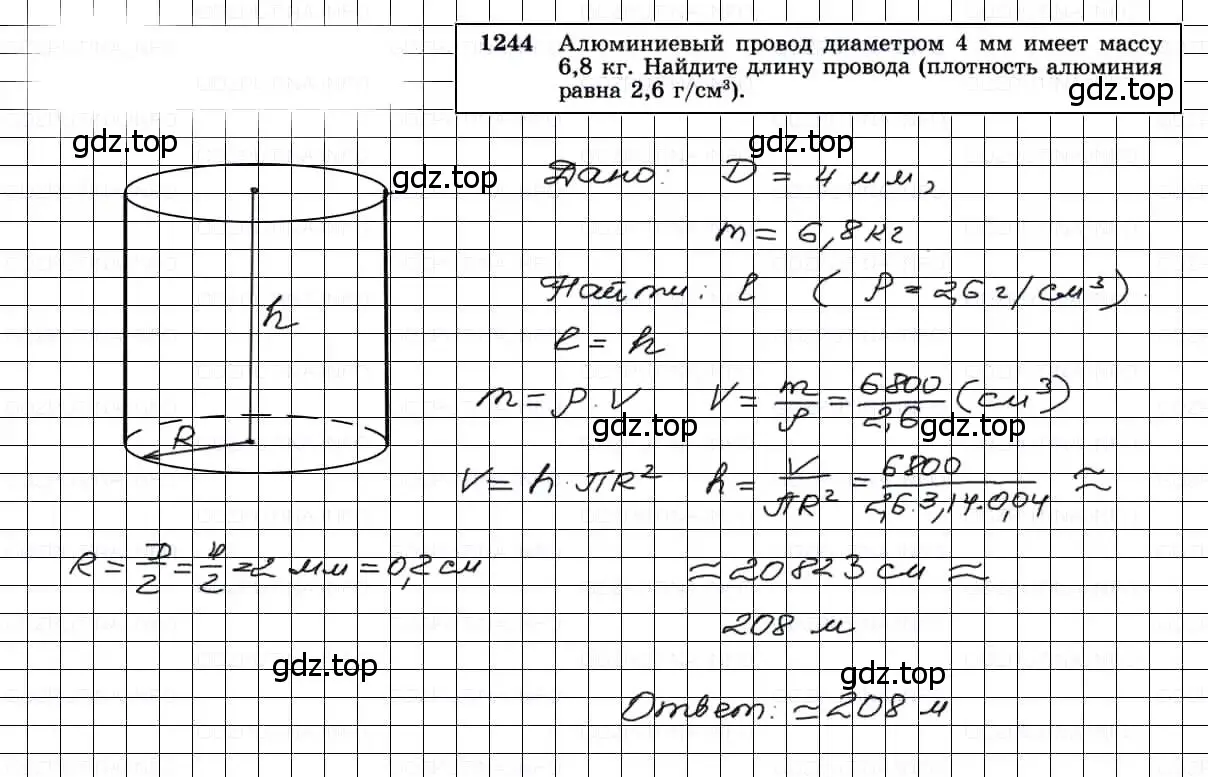 1244 Алюминиевый провод диаметром 4 мм имеет массу
6,8 кг. Найдите длину провода (плотность алюминия
равна 2,6 г/см³).
gdz.top
gdz.top
gdz.top
gdz.top
Дано: D = 4 мм,
m = 6,8 кг.
Найти: l (ρ = 2,6 г/см³).
l = h
h
R
m = ρ·V V = m/ρ = 6800/2,6 (см³)
gdz.top
gdz.top
V = h·πR² h = V/πR² = 6800/2,6·3,14·0,04 ≈
R = D/2 = 4/2 = 2 мм = 0,2 см
≈ 20823 см ≈
208 м
gdz.top
gdz.top
Ответ: ≈ 208 м